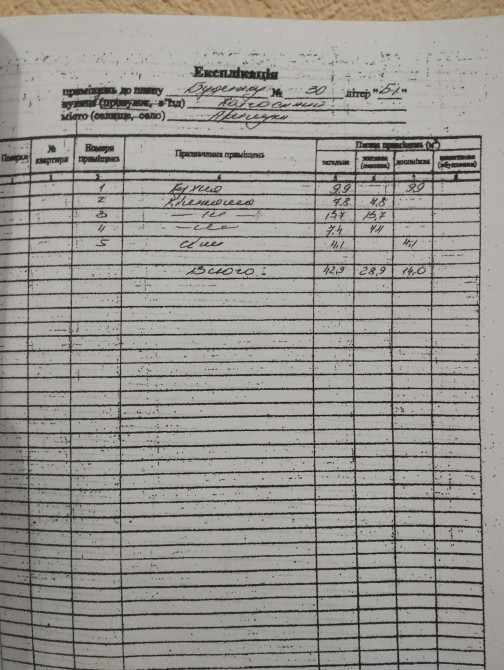 Експлікація
приміщень до плану будинку № 30 літер "Б-1"
вулиця (провулок, в"їзд)
місто (селище, село) Прилуки
Поверхи № квартири Номери приміщень Призначення приміщень Площа приміщень (м²)
загальна житлова (основна) допоміжна
1 2 3 4 5 6 7 8
1 Кухня 9,9 9,9
2 Кімната 7,8 7,8
3 — // — 13,7 13,7
4 — // — 7,4 7,4
5 4,1 4,1
Всього: 42,9 28,9 14,0